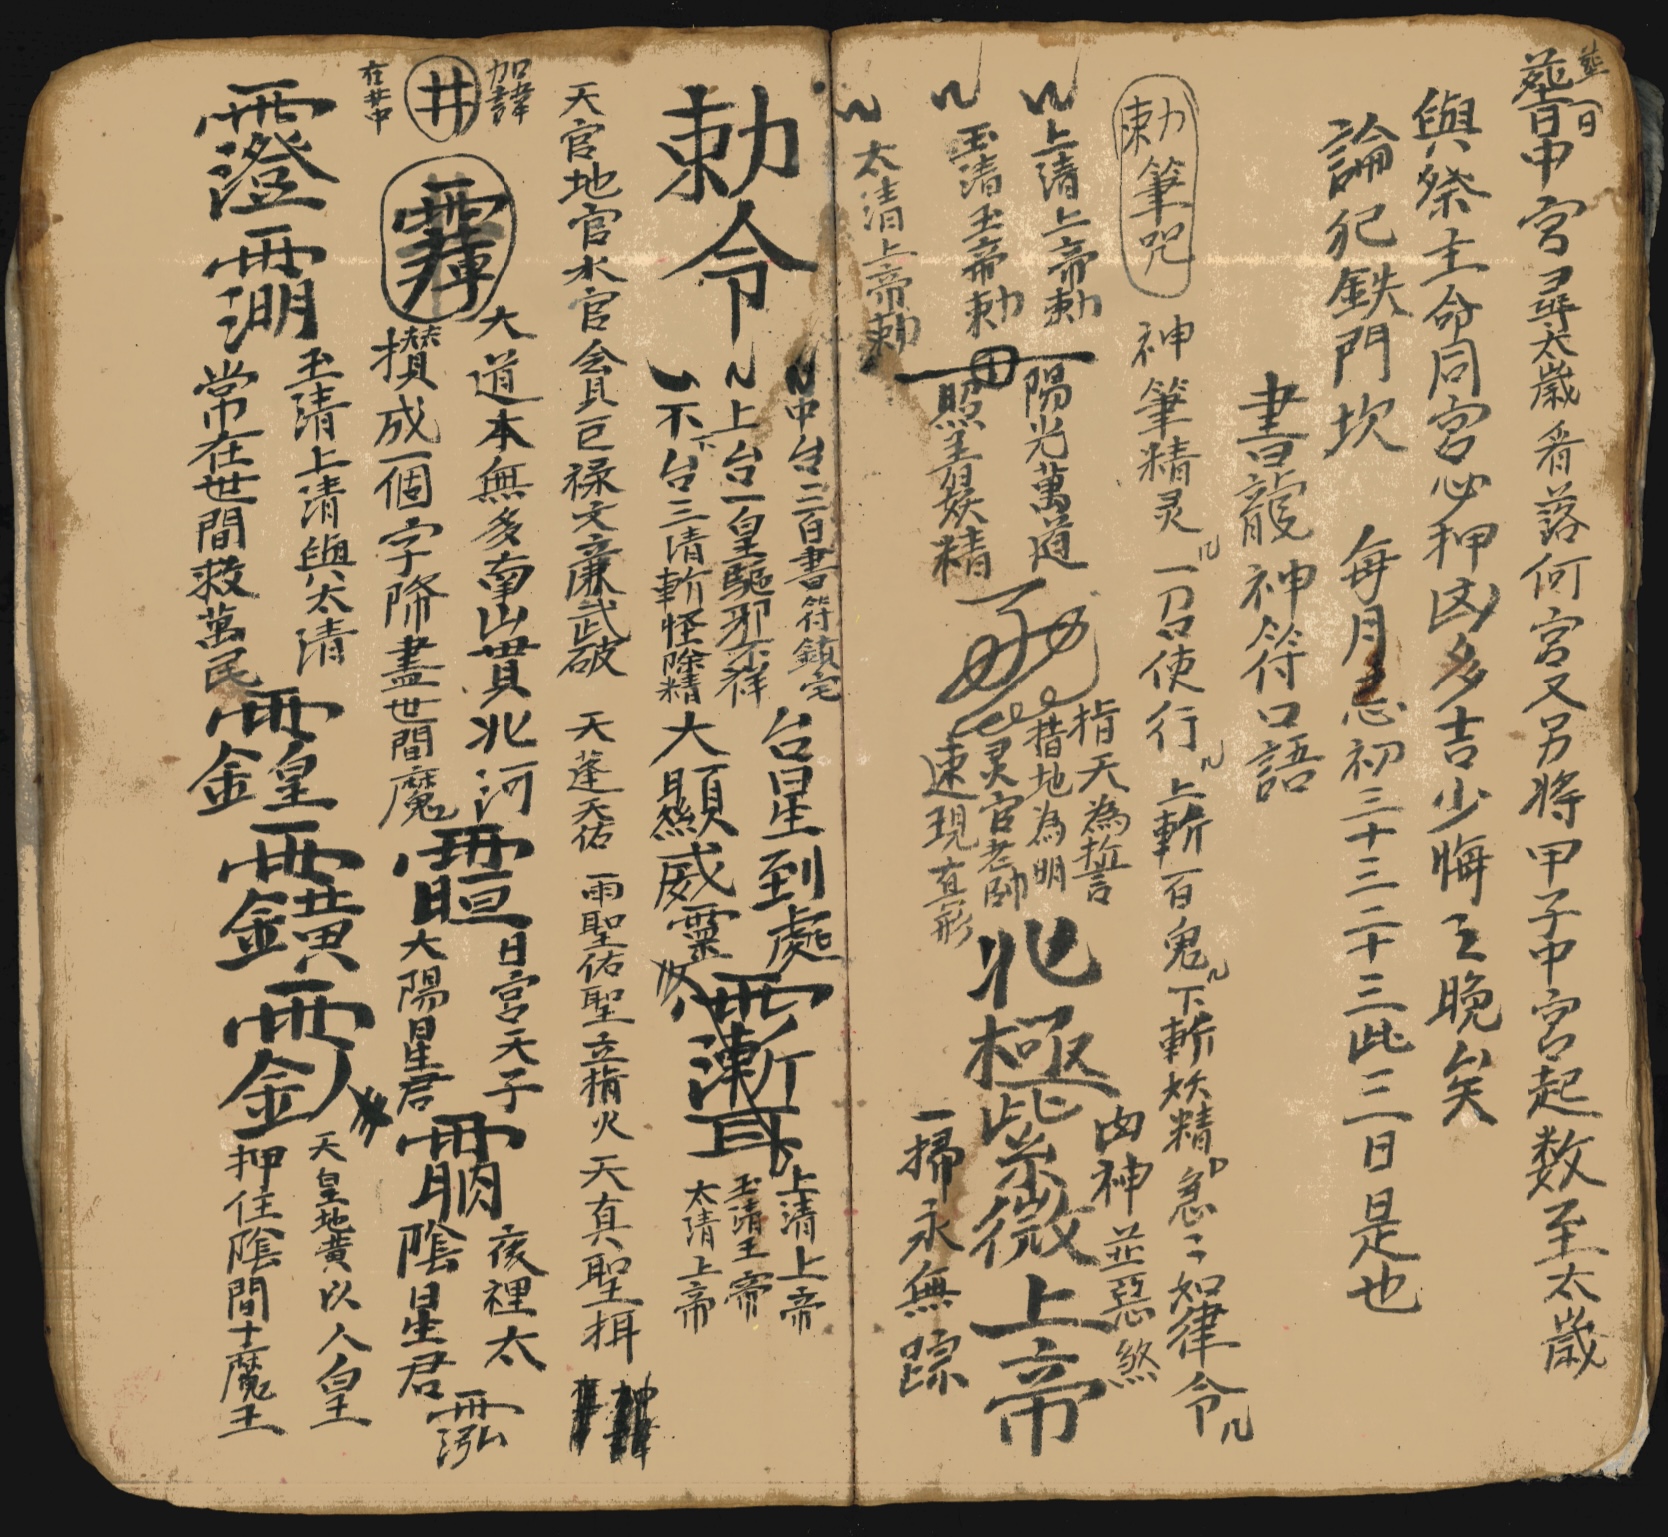 葬日
葬日中宮尋太歲看落何宮又另將甲子中宮起数至太歲
與祭主命同宮必押凶多吉少悔之晚矣
論犯鉄門坎 每月忌初三十三二十三此三日是也
書龍神符口語
勅筆咒 神筆精灵一召使行上斬百鬼下斬妖精急二如律令
上清上帝勅
玉清玉帝勅
太清上帝勅
陽光萬道
照主㫖妖精
指天為誓
措地為明
灵官老帥
速現真形
北極紫微上帝
凶神並惡煞
一掃永無踪
勅令
中台二白書符鎮宅
上台一皇驅邪不祥
下台三清斬怪除精
台星到處
大顯威靈
上清上帝
玉清王帝
太清上帝
天官地官水官会貝巨禄文廉武破 天蓬天佑 一雨聖佑聖立指火天真聖揖
加諱
井
在井中
大道本無多南山貫北河
攅成一個字降盡世間魔
日宮天子
太陽星君
夜裡太
陰星君
玉清上清與太清
常在世間救萬民
天皇地黄以人皇
押住陰間十魔王